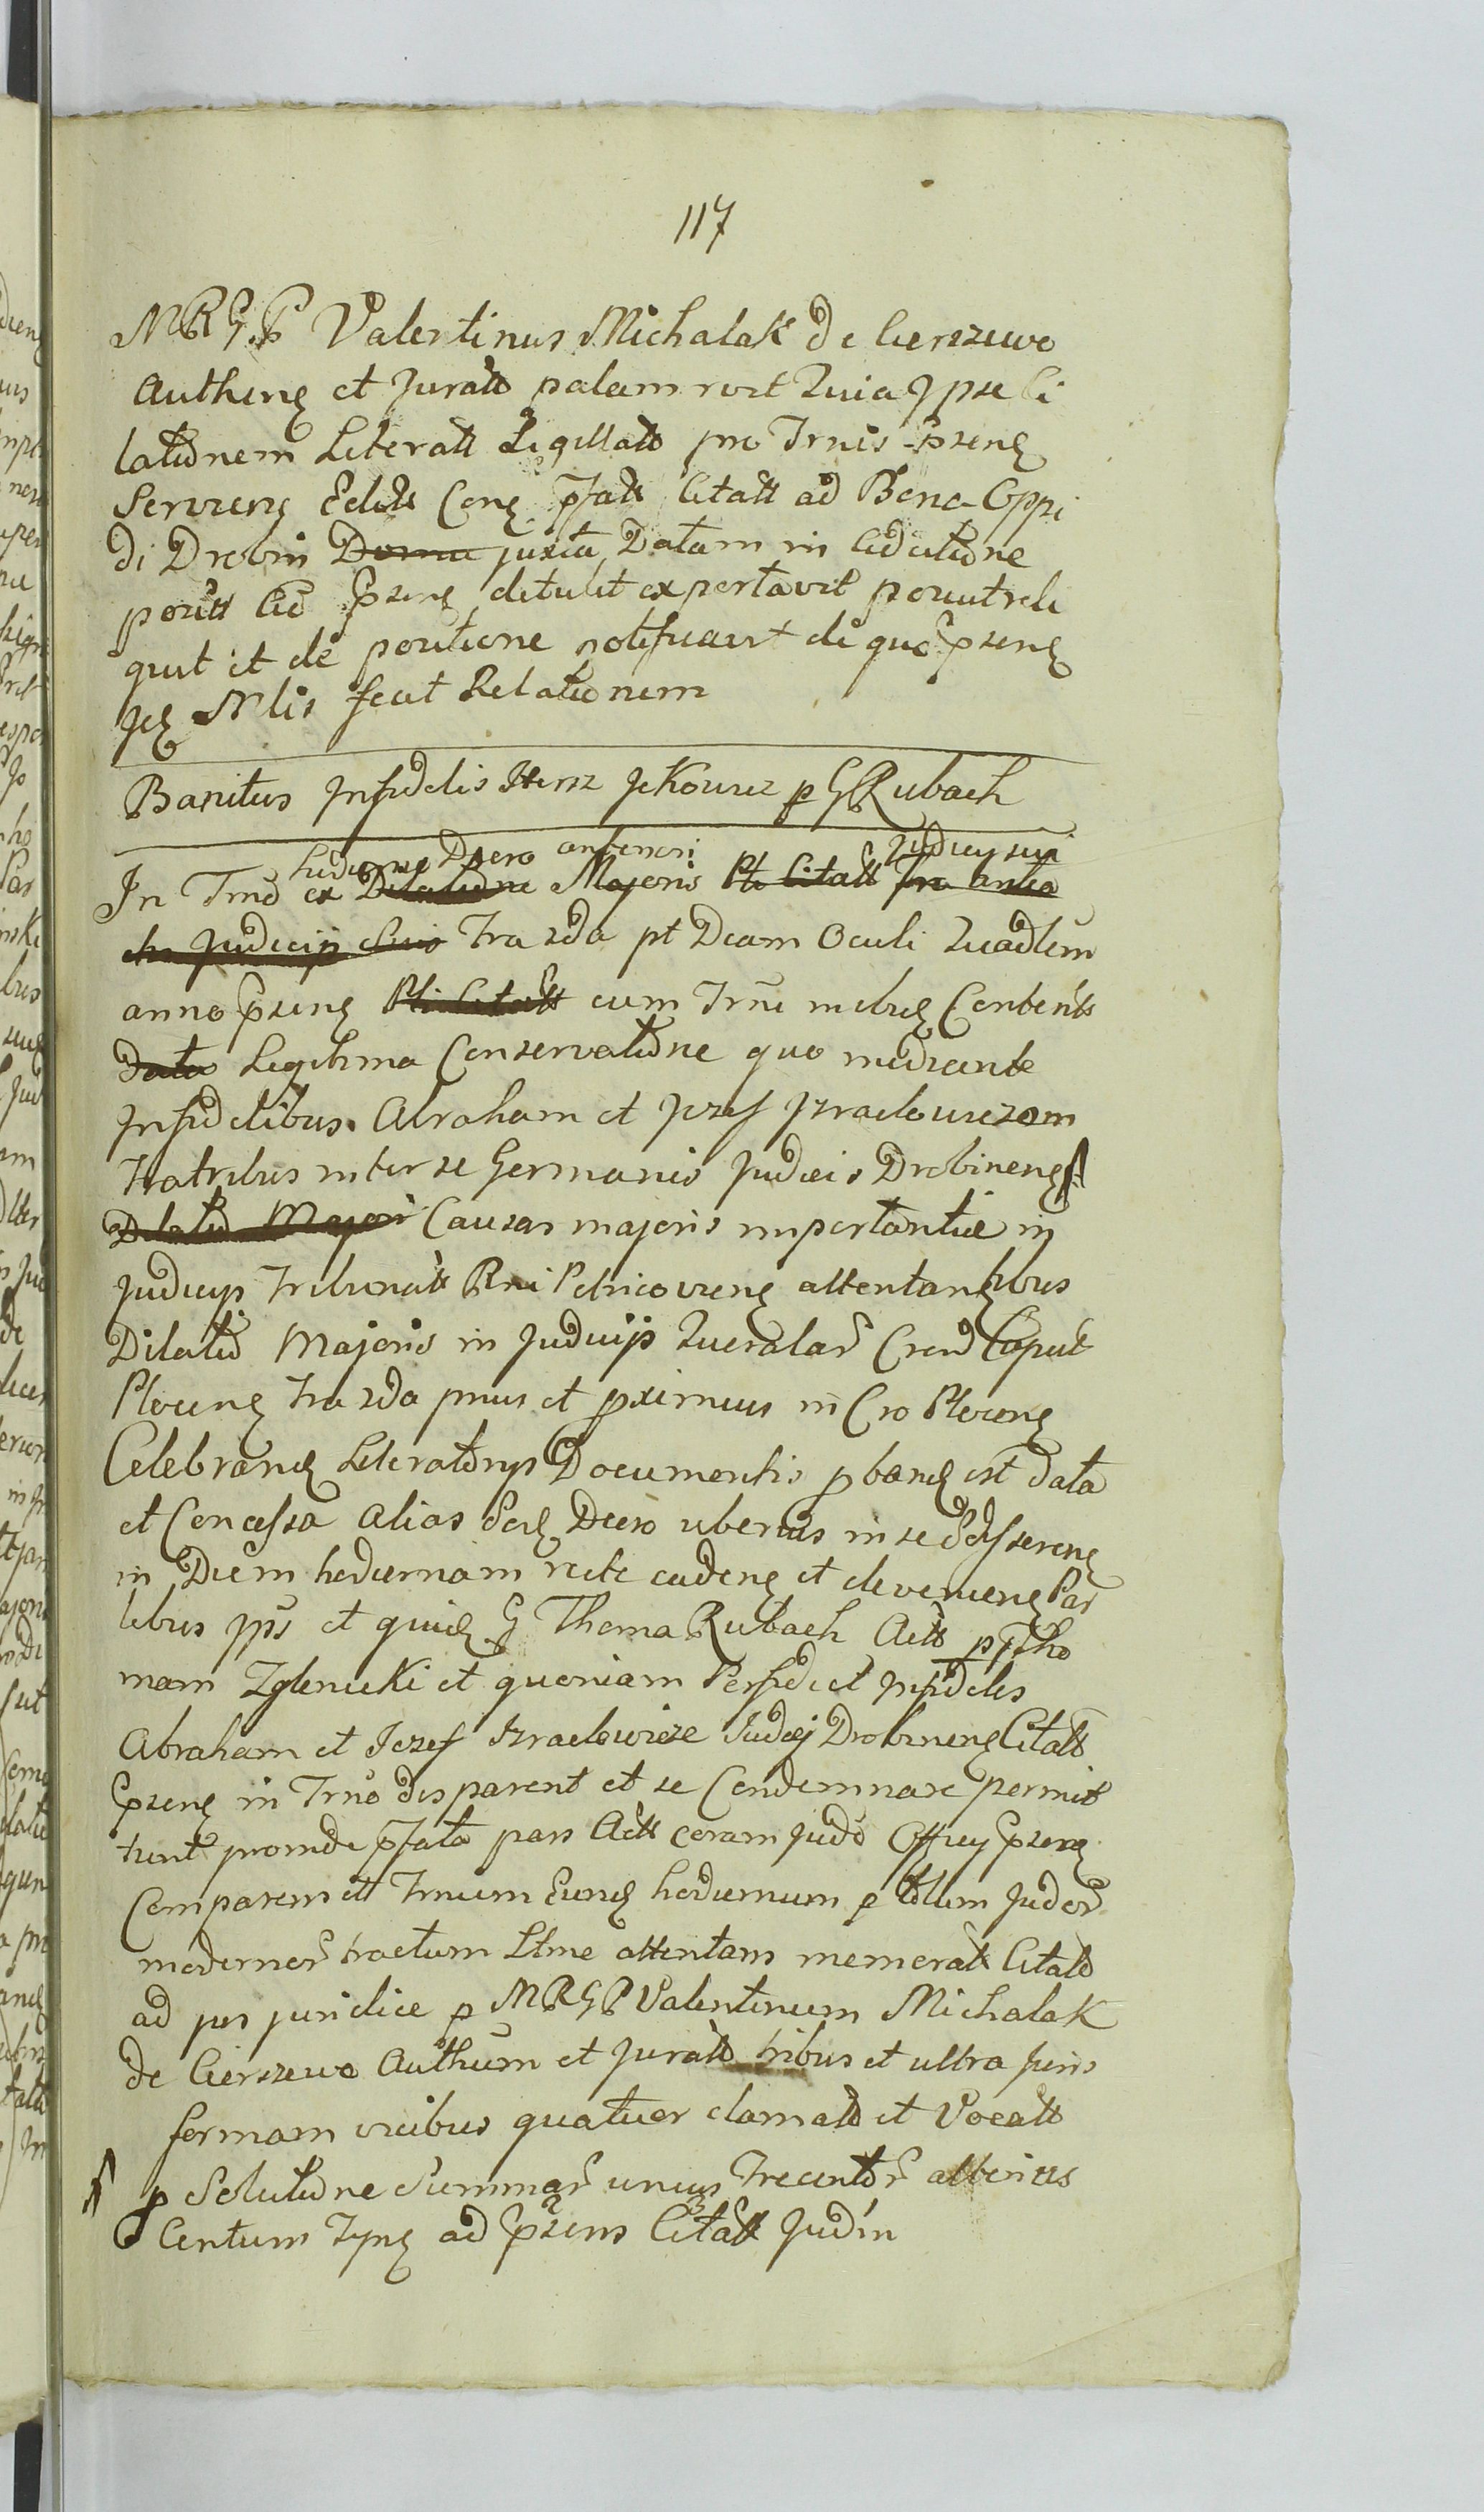 117
MRGP Valentinus Michalak de Cierszewo
Autheng et Juratt palam rect Quia Ipse Ci
lationem Literatt Sigillatt pro Trnis Przeng
Servieng Edit Ceng pfatt Citatt ad Bona Oppi
di Drobin Doma juxta Datam in Citatione
positt Cid Przeng detulit exportavit posuit reli
quit et de positione notificavit de quo Przeng
Jcg Mlis fecit Relationem
Banitus Infidelis Hersz Jckowicz p G Rubach
hodierno Decro anteriori Judicij sui
In Trno ex Dilatione Majoris Pti Citatt In antea
cta Judicij Suis Fra 2da pt Dcam Oculi Quadlem
anno Przeng Pti Citatt cum Trni mebrg Contents
Data Legitima Conservatione quo mediante
Infidelibus Abraham et Jozef Izraelowiczom
Fratribus inter se Germanis Judaeis Drobineng
Dilatio Majori Causas majoris importantiae in
Judicijs Tribunatt Rni Petricovieng attentantibus
Dilatio Majoris in Judicijs Querelar Crend Caput
Ploceng Fra 2da prius et pximius in Cro Ploceng
Celebrand Literatorijs Documentis pband est data
et Concessa alias Scdg Decro uberius in se dissereng
in Diem hodiernam recte cadeng et devenieng Par
tibus Ips et quidg G Thoma Rubach Actt p G Tho
mam Zglenicki et quoniam Perfidi et Infideles
Abraham et Jozef Izraelowicze Judaei Drobineng Citatt
Przeng in Trno disparent et se Condemnare permit
tunt proinde pfata pars Actt coram Judo Officij Przeng
Comparens itt Trnum Eundg hodiernum p Actum Judor
modernor tractum Ltme attentans memoratt Citatt
ad jus juridice p MRGP Valentinum Michalak
de Cierszewo Authum et Juratt tribus et ultra juris
formam vicibus quatuor clamatt et Vocatt
p Solutione Summar unius Trecentor alterius
Centum Tynf ad Przens Citatt Judin